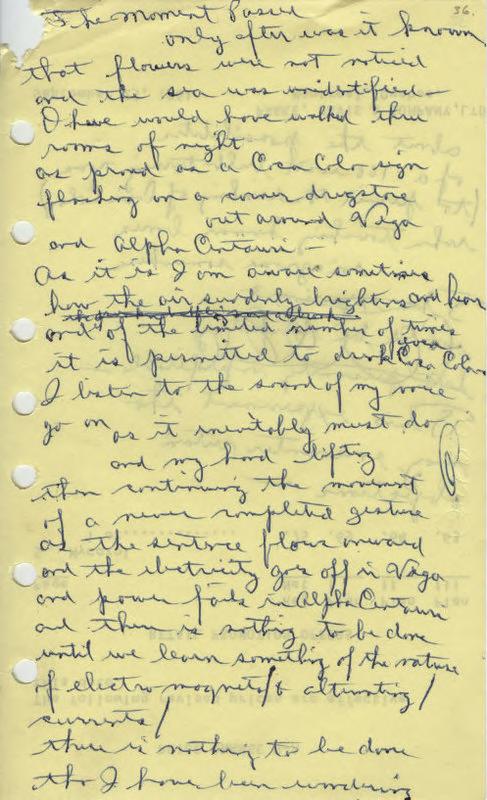 36.
The Moment Passed
only after was it known
that flowers were not noticed
and the sea was unidentified —
I have would have walked thru
rooms of night
as proud as a Coca Cola sign
flashing on a corner drugstore
out around Vega
and Alpha Centauri —
As it is I am aware sometimes
how the air suddenly brightens and hear
and of the limited number of times
it is permitted to drink Coca Colas
I listen to the sound of my voice
go on as it inevitably must do
and my hand lifting
then continuing the movement
of a never completed gesture
as the sentence flows onward
and the electricity goes off in Vega
and power fails in Alpha Centauri
and there is nothing to be done
until we learn something of the nature
of electro magnets & alternating /
currents /
there is nothing to be done
tho I have been wondering